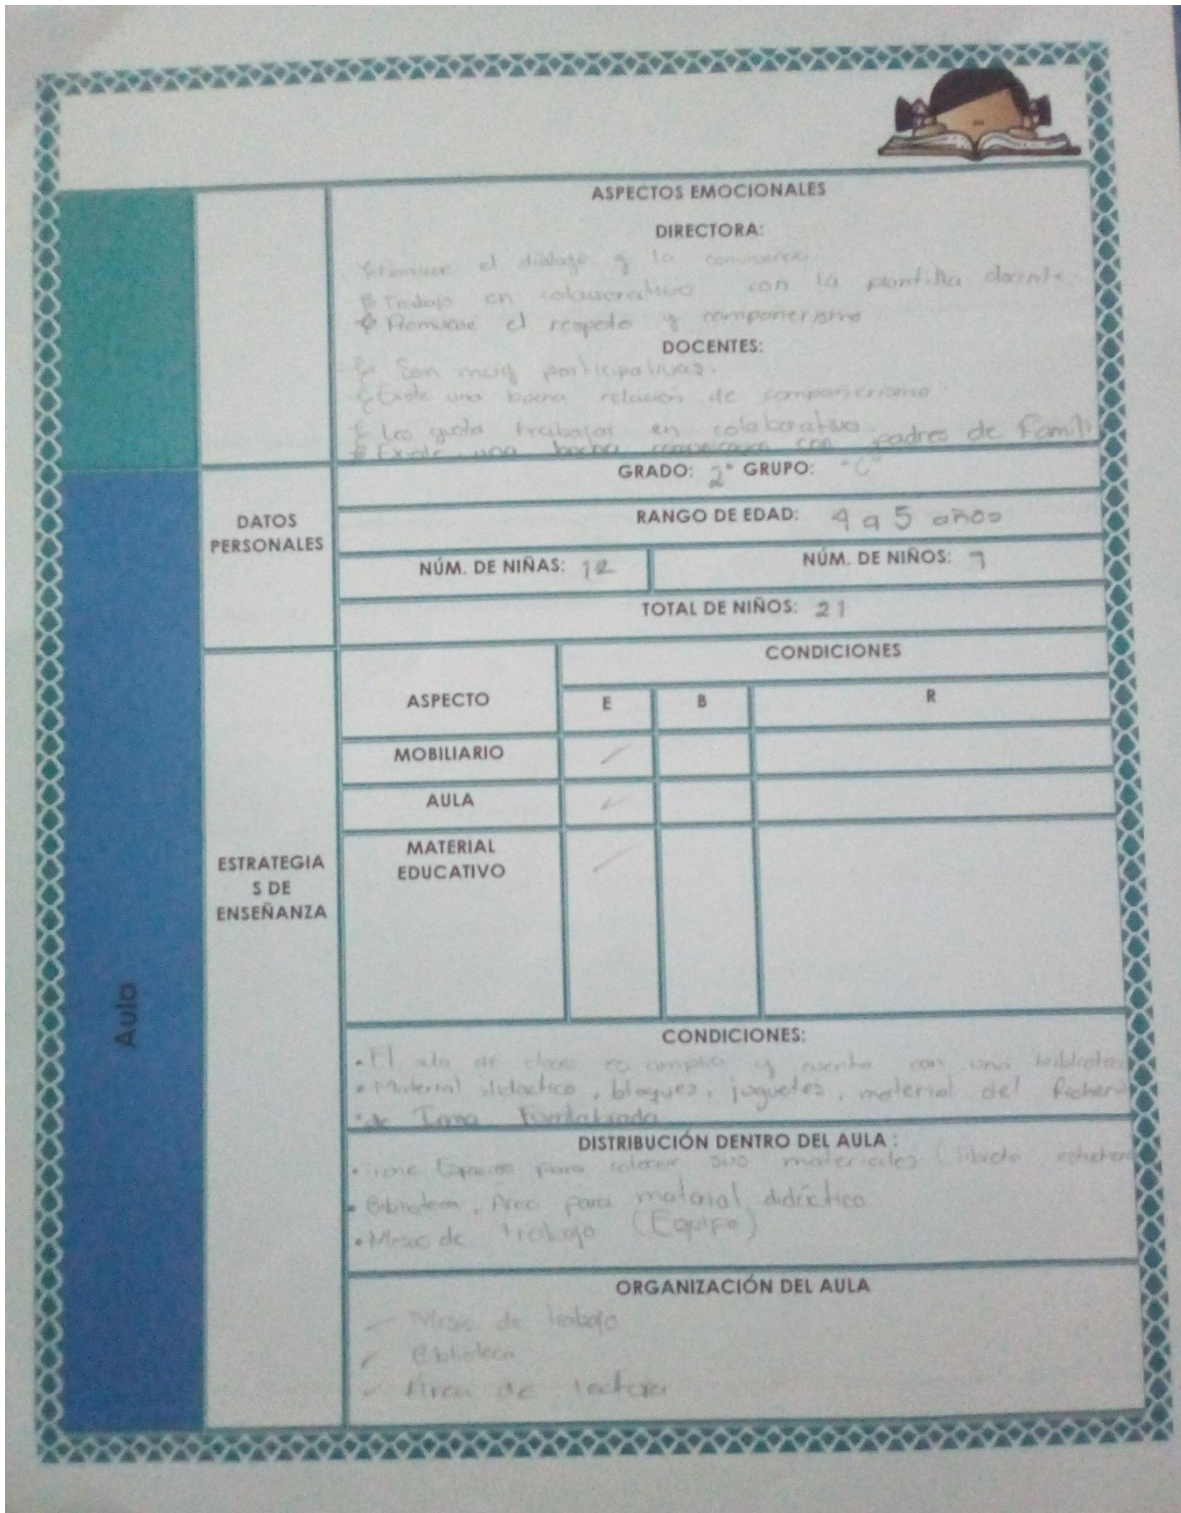 ASPECTOS EMOCIONALES
DIRECTORA:
Promueve el diálogo y la convivencia
Trabajo en colaborativo con la plantilla docente
Promueve el respeto y compañerismo
DOCENTES:
Son muy participativas.
Existe una buena relación de compañerismo
Les gusta trabajar en colaborativo.
Existe una buena comunicación con padres de Famili
DATOS
PERSONALES
GRADO: 2° GRUPO: "C"
RANGO DE EDAD: 4 a 5 años
NÚM. DE NIÑAS: 12 NÚM. DE NIÑOS: 9
TOTAL DE NIÑOS: 21
ESTRATEGIA
S DE
ENSEÑANZA
ASPECTO
CONDICIONES
E B R
MOBILIARIO ✓
AULA ✓
MATERIAL
EDUCATIVO ✓
Aula
CONDICIONES:
• El de clases es amplia y cuenta con una biblioteca
• Material didactico, bloques, juguetes, material del
DISTRIBUCIÓN DENTRO DEL AULA :
• Tiene Espacios para colocar sus materiales (libreta,
• Biblioteca, Area para material didáctico
• Mesas de trabajo (Equipo)
ORGANIZACIÓN DEL AULA
✓ Mesas de trabajo
✓ Biblioteca
✓ Area de lectura